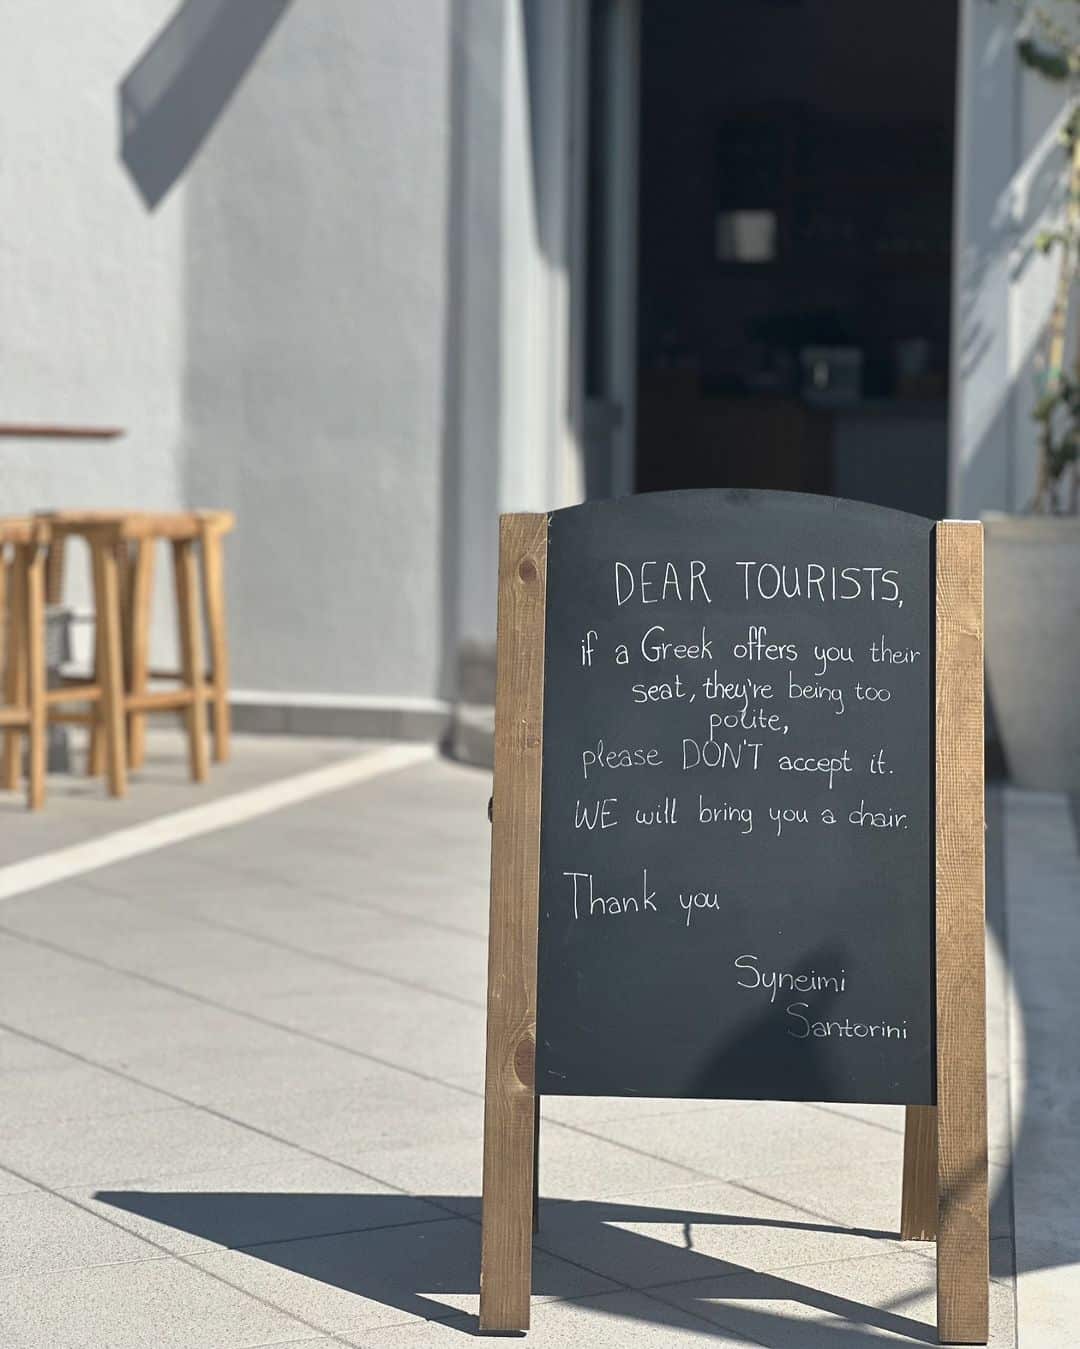 DEAR TOURISTS,
if a Greek offers you their
seat, they're being too
polite,
please DON'T accept it.
WE will bring you a chair.
Thank you
Syneimi
Santorini